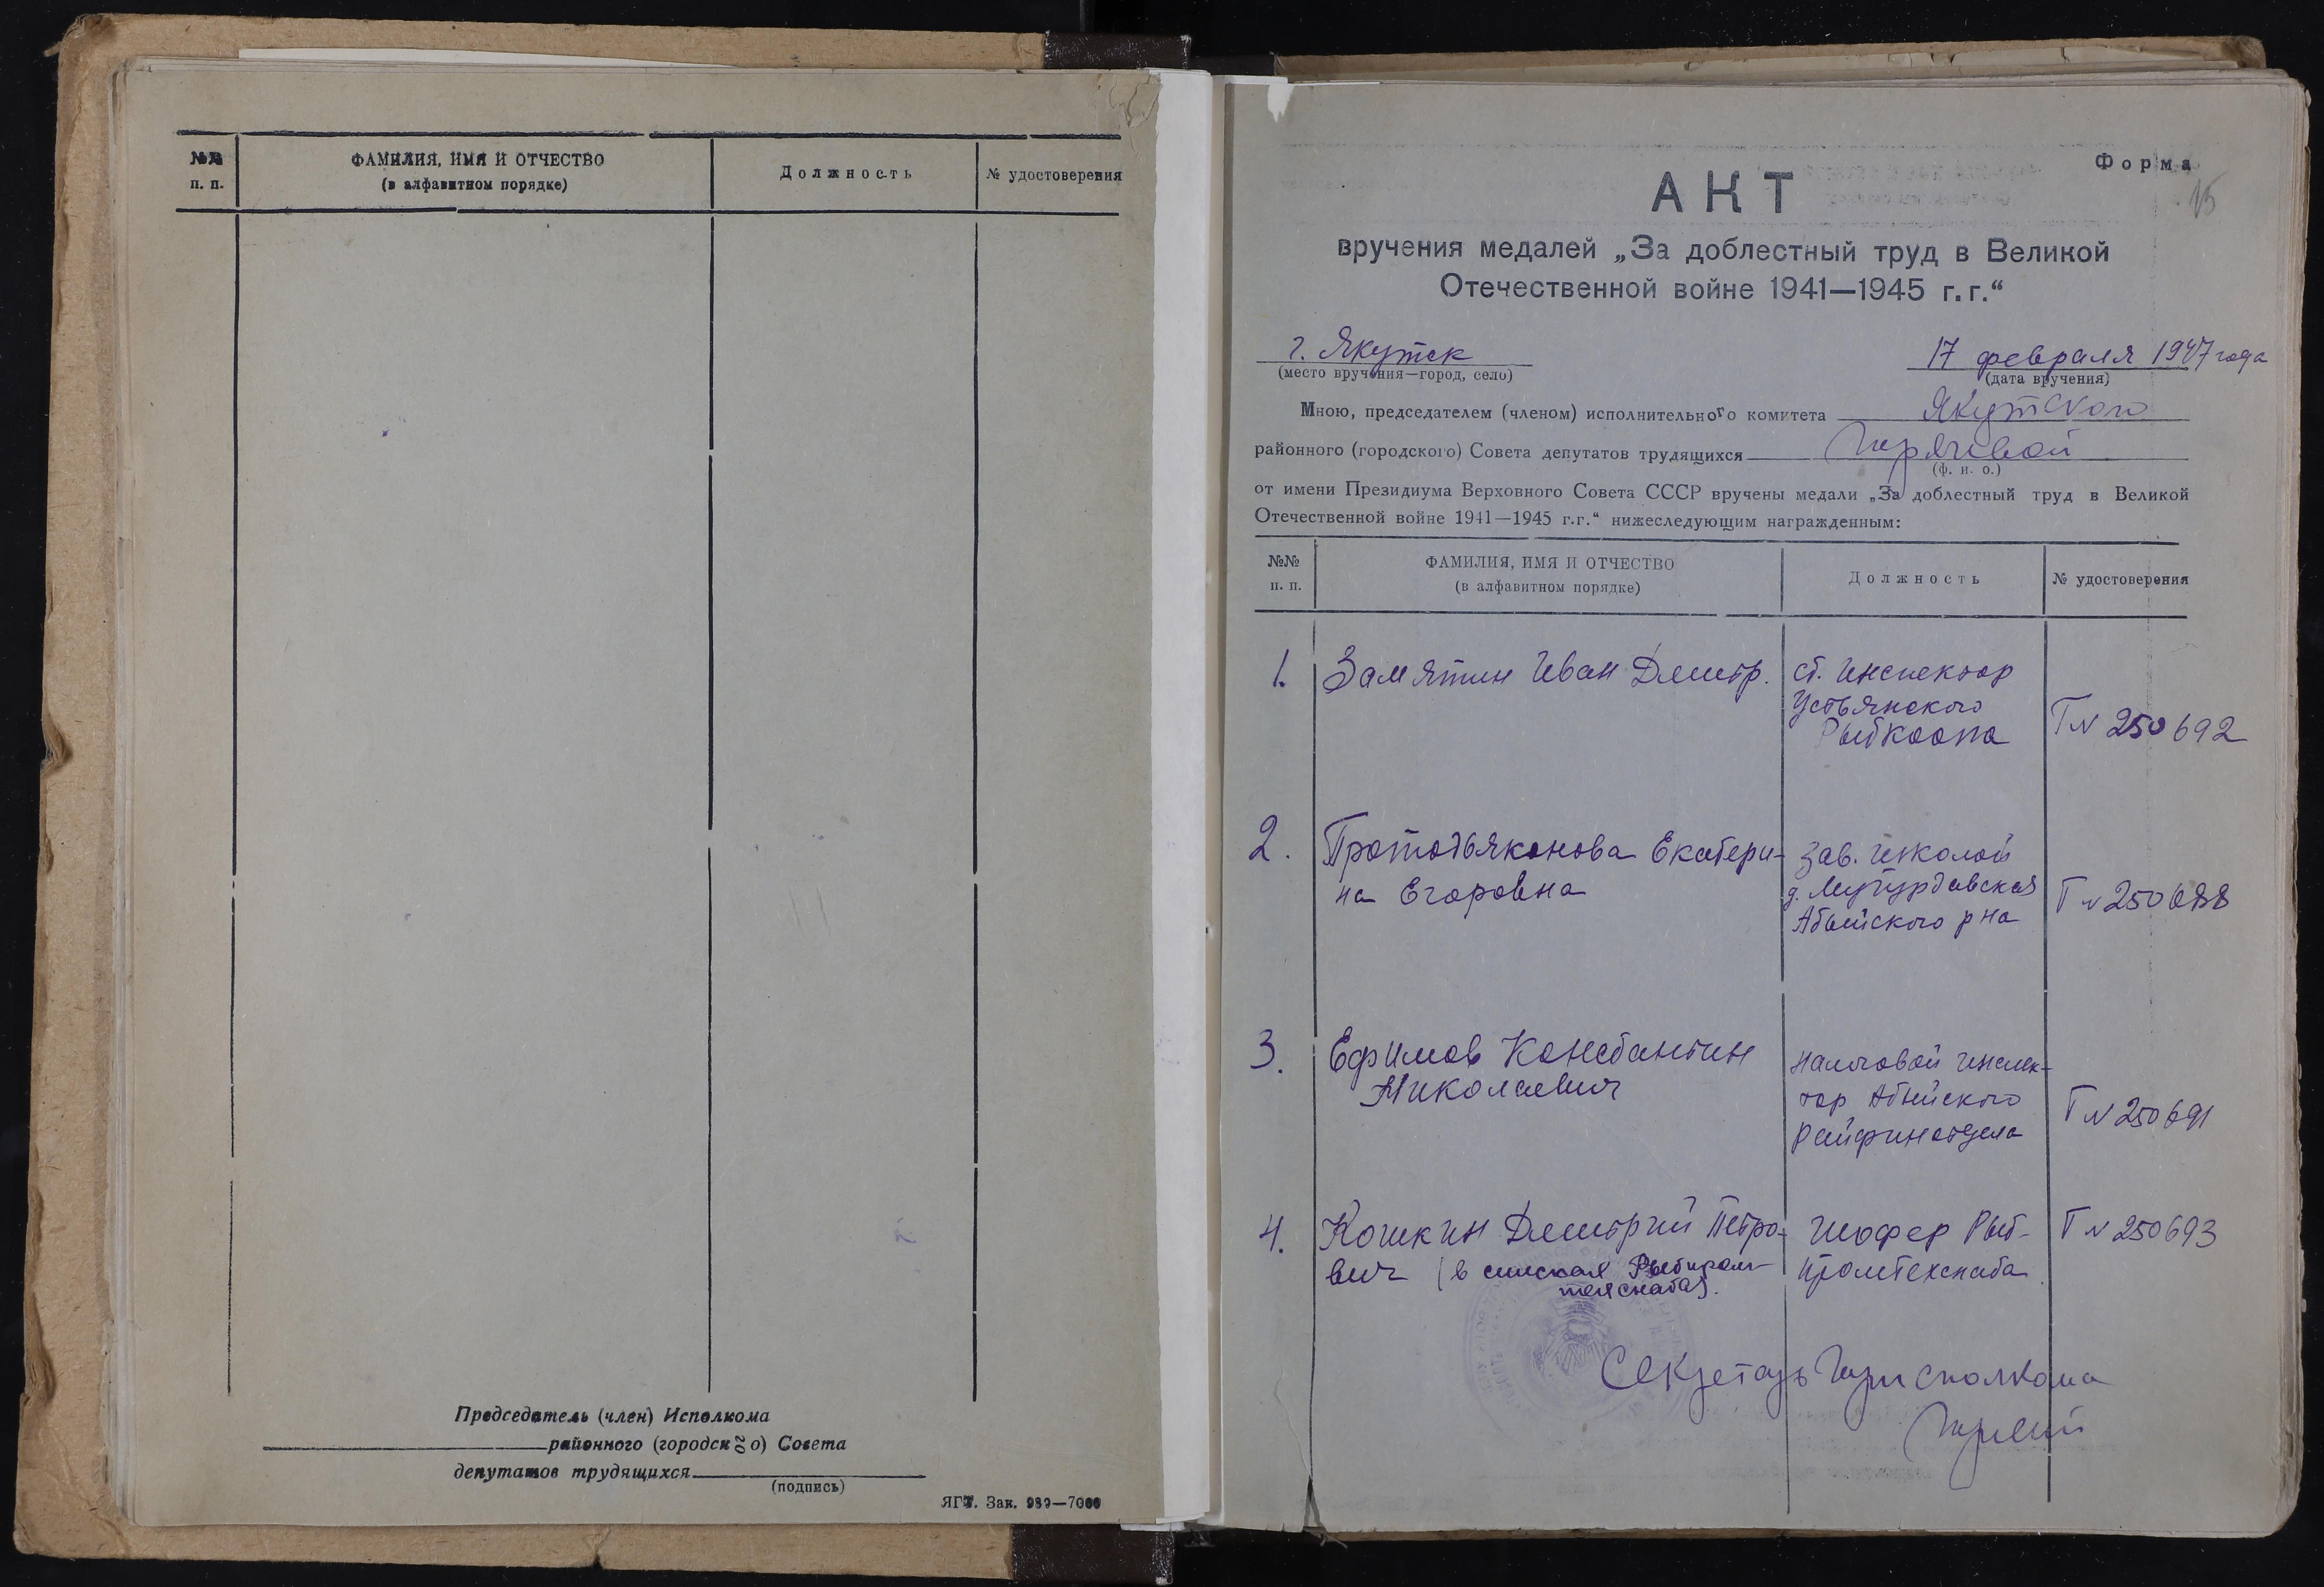 №№ п. п.
ФАМИЛИЯ, ИМЯ И ОТЧЕСТВО
(в алфавитном порядке)
Должность
№ удостоверения
Председатель (член) Исполкома
районного (городского) Совета
депутатов трудящихся
(подпись)
ЯГТ. Зак. 989—7000
Форма
15
АКТ
вручения медалей „За доблестный труд в Великой
Отечественной войне 1941—1945 г.г.“
г. Якутск
17 февраля 1947 года
(место вручения—город, село)
(дата вручения)
Мною, председателем (членом) исполнительного комитета Якутского
районного (городского) Совета депутатов трудящихся
(ф. и. о.)
от имени Президиума Верховного Совета СССР вручены медали „За доблестный труд в Великой
Отечественной войне 1941—1945 г.г.“ нижеследующим награжденным:
№№ п. п.
ФАМИЛИЯ, ИМЯ И ОТЧЕСТВО
(в алфавитном порядке)
Должность
№ удостоверения
1. Замятин Иван Дмитр.
ст. инспектор
Устьянского
Рыбкоопа
Т N 250692
2. Протодьяконова Екатери-
на Егоровна
Зав. школой
Абыйского р на
Т N 250688
3. Ефимов Константин
Николаевич
налоговой инспек-
тор Абыйского
Райфинотдела
Т N 250691
4. Кошкин Дмитрий Петро-
вич (в списках Рыбпром-
техснаба).
Шофер Рыб-
промтехснаба
Т N 250693
Секретарь Горисполкома